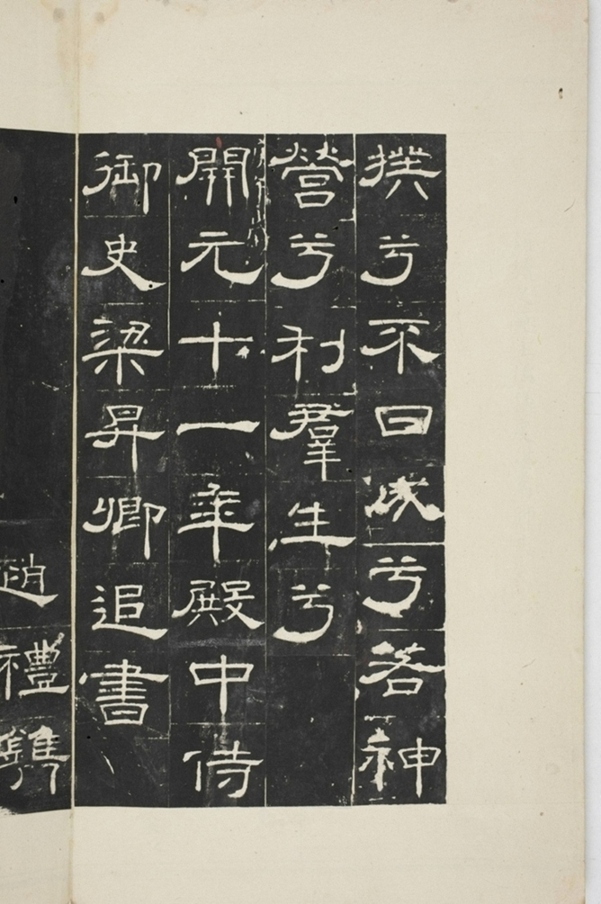 揆兮不日成兮若神
營兮利羣生兮
開元十一年殿中侍
御史梁昇卿追書
趙禮鐫